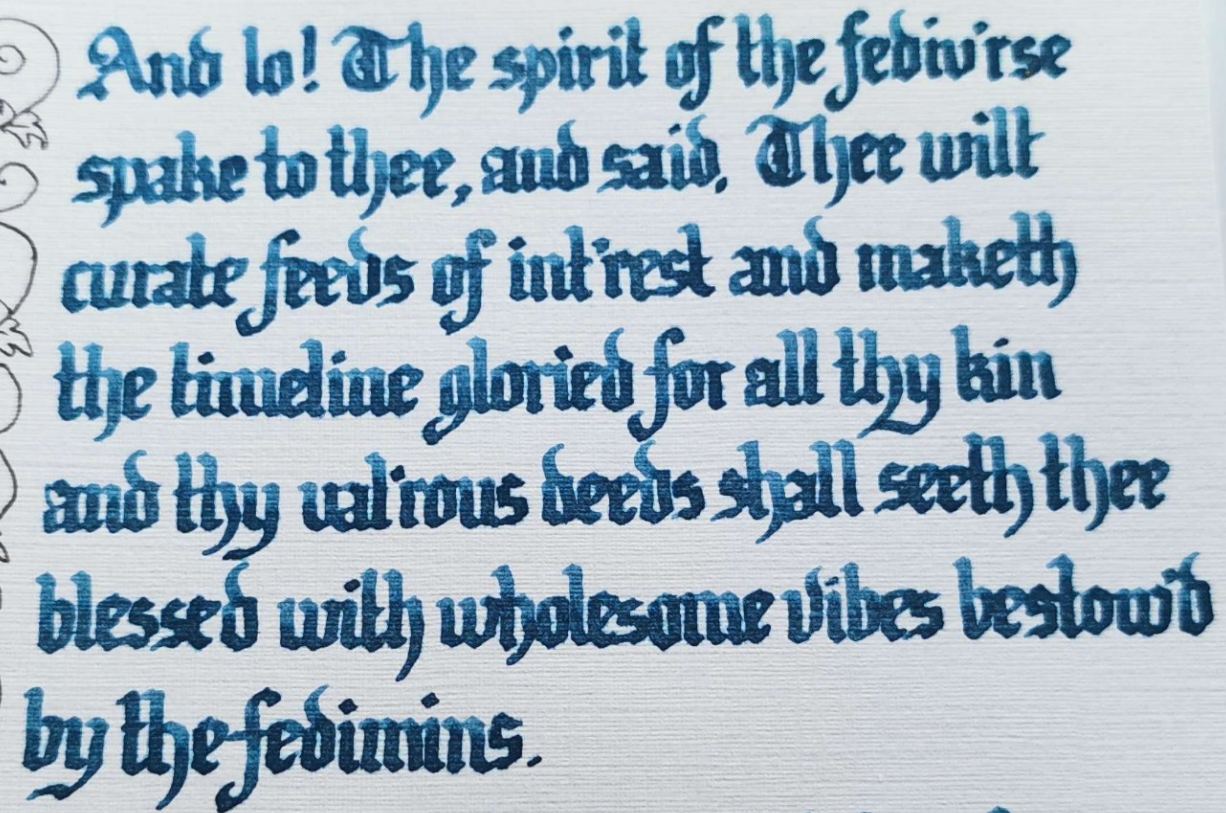 And lo! The spirit of the fediv'rse
spake to thee, and said, Thee wilt
curate feeds of int'rest and maketh
the timeline gloried for all thy kin
and thy val'rous deeds shall seeth thee
blessed with wholesome vibes bestow'd
by the fedimins.